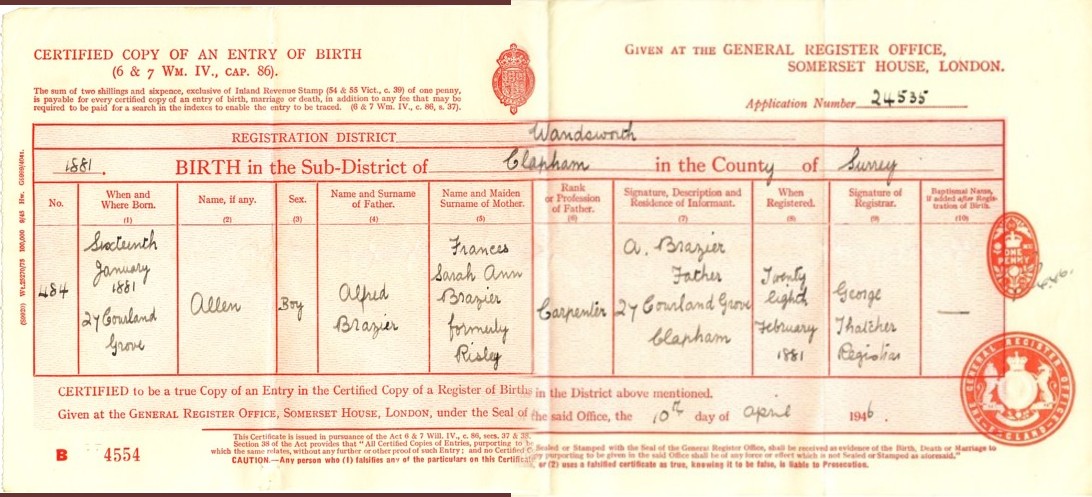 CERTIFIED COPY OF AN ENTRY OF BIRTH
(6 & 7 WM. IV., CAP. 86).
The sum of two shillings and sixpence, exclusive of Inland Revenue Stamp (54 & 55 Vict., c. 39) of one penny,
is payable for every certified copy of an entry of birth, marriage or death, in addition to any fee that may be
required to be paid for a search in the indexes to enable the entry to be traced. (6 & 7 Wm. IV., c. 86, s. 37).
GIVEN AT THE GENERAL REGISTER OFFICE,
SOMERSET HOUSE, LONDON.
Application Number 24535
REGISTRATION DISTRICT Wandsworth
1881. BIRTH in the Sub-District of Clapham in the County of Surrey
No.
When and
Where Born.
(1)
Name, if any.
(2)
Sex.
(3)
Name and Surname
of Father.
(4)
Name and Maiden
Surname of Mother.
(5)
Rank
or Profession
of Father.
(6)
Signature, Description and
Residence of Informant.
(7)
When
Registered.
(8)
Signature of
Registrar.
(9)
Baptismal Name,
if added after Regis-
tration of Birth.
(10)
484
Sixteenth
January
1881
27 Courland
Grove
Allen
Boy
Alfred
Brazier
Frances
Sarah Ann
Brazier
formerly
Risley
Carpenter
A. Brazier
Father
27 Courland Grove
Clapham
Twenty
eighth
February
1881
George
Thatcher
Registrar
ONE
PENNY
CERTIFIED to be a true Copy of an Entry in the Certified Copy of a Register of Births in the District above mentioned.
Given at the GENERAL REGISTER OFFICE, SOMERSET HOUSE, LONDON, under the Seal of the said Office, the 10th day of April 1946.
GENERAL REGISTER OFFICE
ENGLAND
B 4554
This Certificate is issued in pursuance of the Act 6 & 7 Will. IV., c. 86, secs. 37 & 38.
Section 38 of the Act provides that "All Certified Copies of Entries, purporting to be Sealed or Stamped with the Seal of the General Register Office, shall be received as evidence of the Birth, Death or Marriage to
which the same relates, without any further or other proof of such Entry; and no Certified Copy purporting to be given in the said Office shall be of any force or effect which is not Sealed or Stamped as aforesaid."
CAUTION.—Any person who (1) falsifies any of the particulars on this Certificate, or (2) uses a falsified certificate as true, knowing it to be false, is liable to Prosecution.